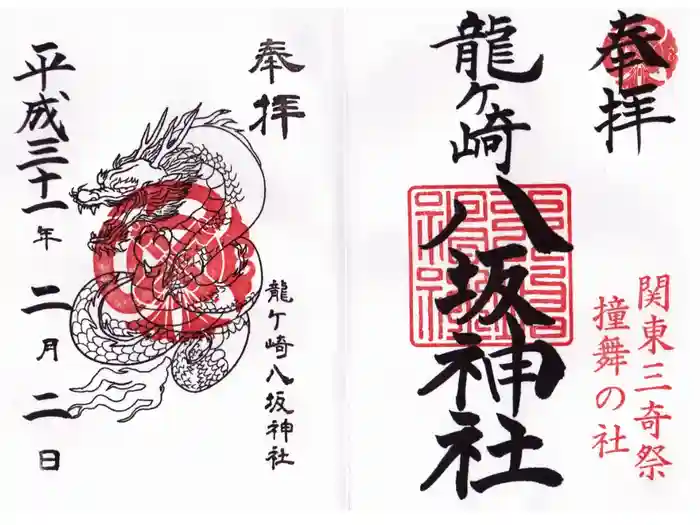 奉拝
関東三奇祭
撞舞の社
龍ヶ崎
八坂神社
奉拝
龍ケ崎八坂神社
平成三十一年二月二日